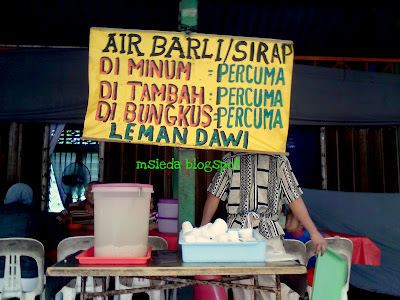 AIR BARLI/SIRAP
DI MINUM = PERCUMA
DI TAMBAH = PERCUMA
DI BUNGKUS = PERCUMA
LEMAN DAWI
msieda.blogspot